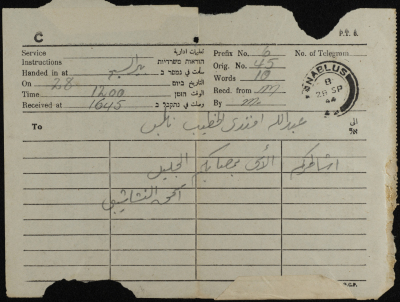 C P.T. 6.
Service تعليمات ادارية Prefix No. 6 No. of Telegram
Instructions הוראות משרדיות Orig. No. 45
Handed in at سلمت في נמסר ב بئر السبع Words 10
On 28 التاريخ ביום Recd. from m
Time 1200 الوقت הזמן By m
Received at 1645 وصلت في נתקבל ב
NABLUS
B
28 SP
44
To عبدالله افندي الخطيب نابلس الى אל
اشاطركم الأسى بمصابكم الجليل
النشاشيبي